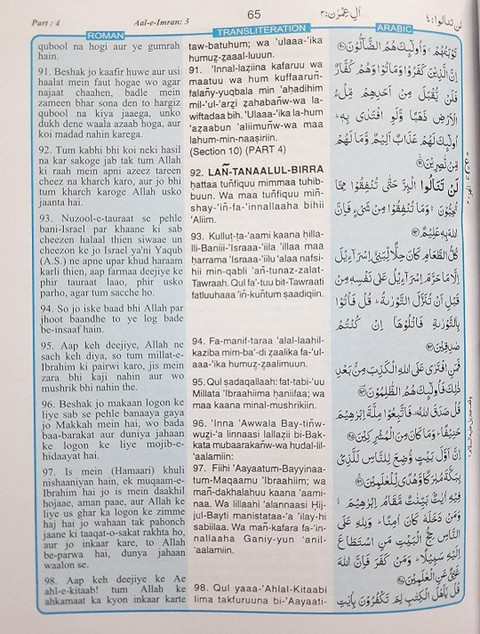 Part : 4
Aal-e-Imran: 3
65
اٰلِ عِمْرٰن:٣
لن تنالوا:٤
ROMAN
qubool na hogi aur ye gumrah
hain.
91. Beshak jo kaafir huwe aur usi
haalat mein faut hogae wo agar
najaat chaahen, badle mein
zameen bhar sona den to hargiz
qubool na kiya jaega, unko
dukh dene waala azaab hoga, aur
koi madad nahin karega.
92. Tum kabhi bhi koi neki hasil
na kar sakoge jab tak tum Allah
ki raah mein apni azeez tareen
cheez na kharch karo, aur jo bhi
tum kharch karoge Allah usko
jaanta hai.
93. Nuzool-e-tauraat se pehle
bani-Israel par khaane ki sab
cheezen halaal thien siwaae un
cheezon ke jo Israel ya'ni Yaqub
(A.S.) ne apne upar khud haraam
karli thien, aap farmaa deejiye ke
phir tauraat laao, phir usko
parho, agar tum sacche ho.
94. So jo iske baad bhi Allah par
jhoot baandhe to ye log bade
be-insaaf hain.
95. Aap keh deejiye, Allah ne
sach keh diya, so tum millat-e-
Ibrahim ki pairwi karo, jis mein
zara bhi kaji nahin aur wo
mushrik bhi nahin the.
96. Beshak jo makaan logon ke
liye sab se pehle banaaya gaya
jo Makkah mein hai, wo bada
baa-barakat aur duniya jahaan
ke logon ke liye mojib-e-
hidaayat hai.
97. Is mein (Hamaari) khuli
nishaaniyan hain, ek muqaam-e-
Ibrahim hai jo is mein daakhil
hojaae, aman paae, aur Allah ke
liye us ghar ka logon ke zimme
haj hai jo wahaan tak pahonch
jaane ki taaqat-o-sakat rakhta ho,
aur jo inkaar kare, to Allah
be-parwa hai, dunya jahaan
waalon se.
98. Aap keh deejiye ke Ae
ahl-e-kitaab! tum Allah ke
ahkamaat ka kyon inkaar karte
TRANSLITERATION
taw-batuhum; wa 'ulaaa-'ika
humuẓ-ẓaaal-luuun.
91. 'Innal-laẓiina kafaruu wa
maatuu wa hum kuffaaruñ-
falañy-yuqbala min 'aḥadihim
mil-'ul-'arẓi ẓahabañw-wa la-
wiftadaa bih. 'Ulaaa-'ika la-hum
'aẓaabun 'aliimuñw-wa maa
lahum-min-naaṣiriin.
(Section 10) (PART 4)
92. LAÑ-TANAALUL-BIRRA
ḥattaa tuñfiquu mimmaa tuhib-
buun. Wa maa tuñfiquu miñ-
shay-'iñ-fa-'innallaaha bihii
'Aliim.
93. Kulluṭ-ṭa-'aami kaana ḥilla-
lli-Baniii-'Israaa-'iila 'illaa maa
ḥarrama 'Israaa-'iilu 'alaa nafsi-
hii min-qabli 'añ-tunaz-zalat-
Tawraah. Qul fa'-tuu bit-Tawraati
fatluuhaaa 'iñ-kuñtum ṣaadiqiin.
94. Fa-manif-taraa 'alal-laahil-
kaziba mim-ba'-di ẓaalika fa-'ul-
aaa-'ika humuẓ-ẓaalimuun.
95. Qul ṣadaqallaah: fat-tabi-'uu
Millata 'Ibraahiima ḥaniifaa; wa
maa kaana minal-mushrikiin.
96. 'Inna 'Awwala Bay-tiñw-
wuẓi-'a linnaasi lallaẓii bi-Bak-
kata mubaarakañw-wa hudal-lil-
'aalamiin.
97. Fiihi 'Aayaatum-Bayyinaa-
tum-Maqaamu 'Ibraahiim; wa
mañ-dakhalahuu kaana 'aami-
naa. Wa lillaahi 'alannaasi Ḥij-
jul-Bayti manistataa-'a 'ilay-hi
sabiilaa. Wa mañ-kafara fa-'in-
nallaaha Ganiy-yun 'anil-
'aalamiin.
98. Qul yaaa-'Ahlal-Kitaabi
lima takfuruuna bi-'Aayaati-
ARABIC
تَوْبَتُهُمْ ۚ وَاُولٰٓئِكَ هُمُ الضَّآلُّوْنَ ۝٩٠
اِنَّ الَّذِيْنَ كَفَرُوْا وَمَاتُوْا وَهُمْ كُفَّارٌ
فَلَنْ يُّقْبَلَ مِنْ اَحَدِهِمْ مِّلْءُ
الْاَرْضِ ذَهَبًا وَّلَوِ افْتَدٰى بِهٖ ؕ
اُولٰٓئِكَ لَهُمْ عَذَابٌ اَلِيْمٌ وَّمَا لَهُمْ
مِّنْ نّٰصِرِيْنَ ۝٩١
لَنْ تَنَالُوا الْبِرَّ حَتّٰى تُنْفِقُوْا مِمَّا
تُحِبُّوْنَ ؕ وَمَا تُنْفِقُوْا مِنْ شَيْءٍ فَاِنَّ
اللّٰهَ بِهٖ عَلِيْمٌ ۝٩٢
كُلُّ الطَّعَامِ كَانَ حِلًّا لِّبَنِيْٓ اِسْرَآءِيْلَ
اِلَّا مَا حَرَّمَ اِسْرَآءِيْلُ عَلٰى نَفْسِهٖ مِنْ
قَبْلِ اَنْ تُنَزَّلَ التَّوْرٰىةُ ؕ قُلْ فَاْتُوْا
بِالتَّوْرٰىةِ فَاتْلُوْهَآ اِنْ كُنْتُمْ
صٰدِقِيْنَ ۝٩٣
فَمَنِ افْتَرٰى عَلَى اللّٰهِ الْكَذِبَ مِنْۢ بَعْدِ
ذٰلِكَ فَاُولٰٓئِكَ هُمُ الظّٰلِمُوْنَ ۝٩٤
قُلْ صَدَقَ اللّٰهُ فَاتَّبِعُوْا مِلَّةَ اِبْرٰهِيْمَ
حَنِيْفًا ؕ وَمَا كَانَ مِنَ الْمُشْرِكِيْنَ ۝٩٥
اِنَّ اَوَّلَ بَيْتٍ وُّضِعَ لِلنَّاسِ لَلَّذِيْ
بِبَكَّةَ مُبٰرَكًا وَّهُدًى لِّلْعٰلَمِيْنَ ۝٩٦
فِيْهِ اٰيٰتٌۢ بَيِّنٰتٌ مَّقَامُ اِبْرٰهِيْمَ
وَمَنْ دَخَلَهٗ كَانَ اٰمِنًا ؕ وَلِلّٰهِ عَلَى
النَّاسِ حِجُّ الْبَيْتِ مَنِ اسْتَطَاعَ
اِلَيْهِ سَبِيْلًا ؕ وَمَنْ كَفَرَ فَاِنَّ اللّٰهَ
غَنِيٌّ عَنِ الْعٰلَمِيْنَ ۝٩٧
قُلْ يٰٓاَهْلَ الْكِتٰبِ لِمَ تَكْفُرُوْنَ بِاٰيٰتِ